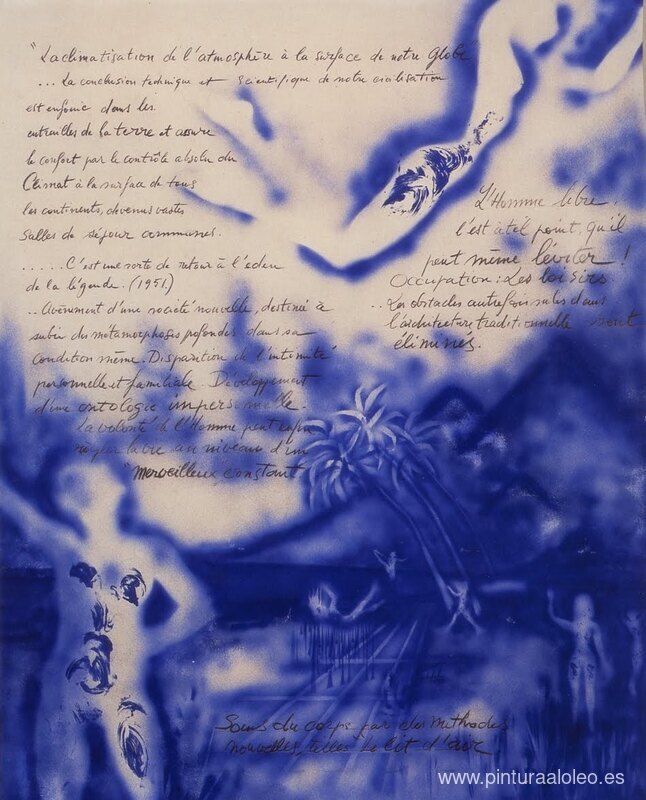 "La climatisation de l'atmosphère à la surface de notre Globe
... La conclusion technique et scientifique de notre civilisation
est enfouie dans les
entrailles de la terre et assure
le confort par le contrôle absolu du
Climat à la surface de tous
les continents, devenus vastes
salles de séjour communes.
..... C'est une sorte de retour à l'eden
de la légende. (1951)
.. Avènement d'une société nouvelle, destinée à
subir des métamorphoses profondes dans sa
condition même. Disparition de l'intimité
personnelle et familiale. Développement
d'une ontologie impersonnelle.
La volonté de l'Homme peut enfin
la vie au niveau d'un
"Merveilleux constant
L'Homme libre,
l'est à tel point, qu'il
peut même léviter !
Occupation : Les loisirs
.. Les obstacles autrefois subis dans
l'architecture traditionnelle sont
éliminés.
Soins du corps par des méthodes
nouvelles, telles le lit d'air
www.pinturaaloleo.es